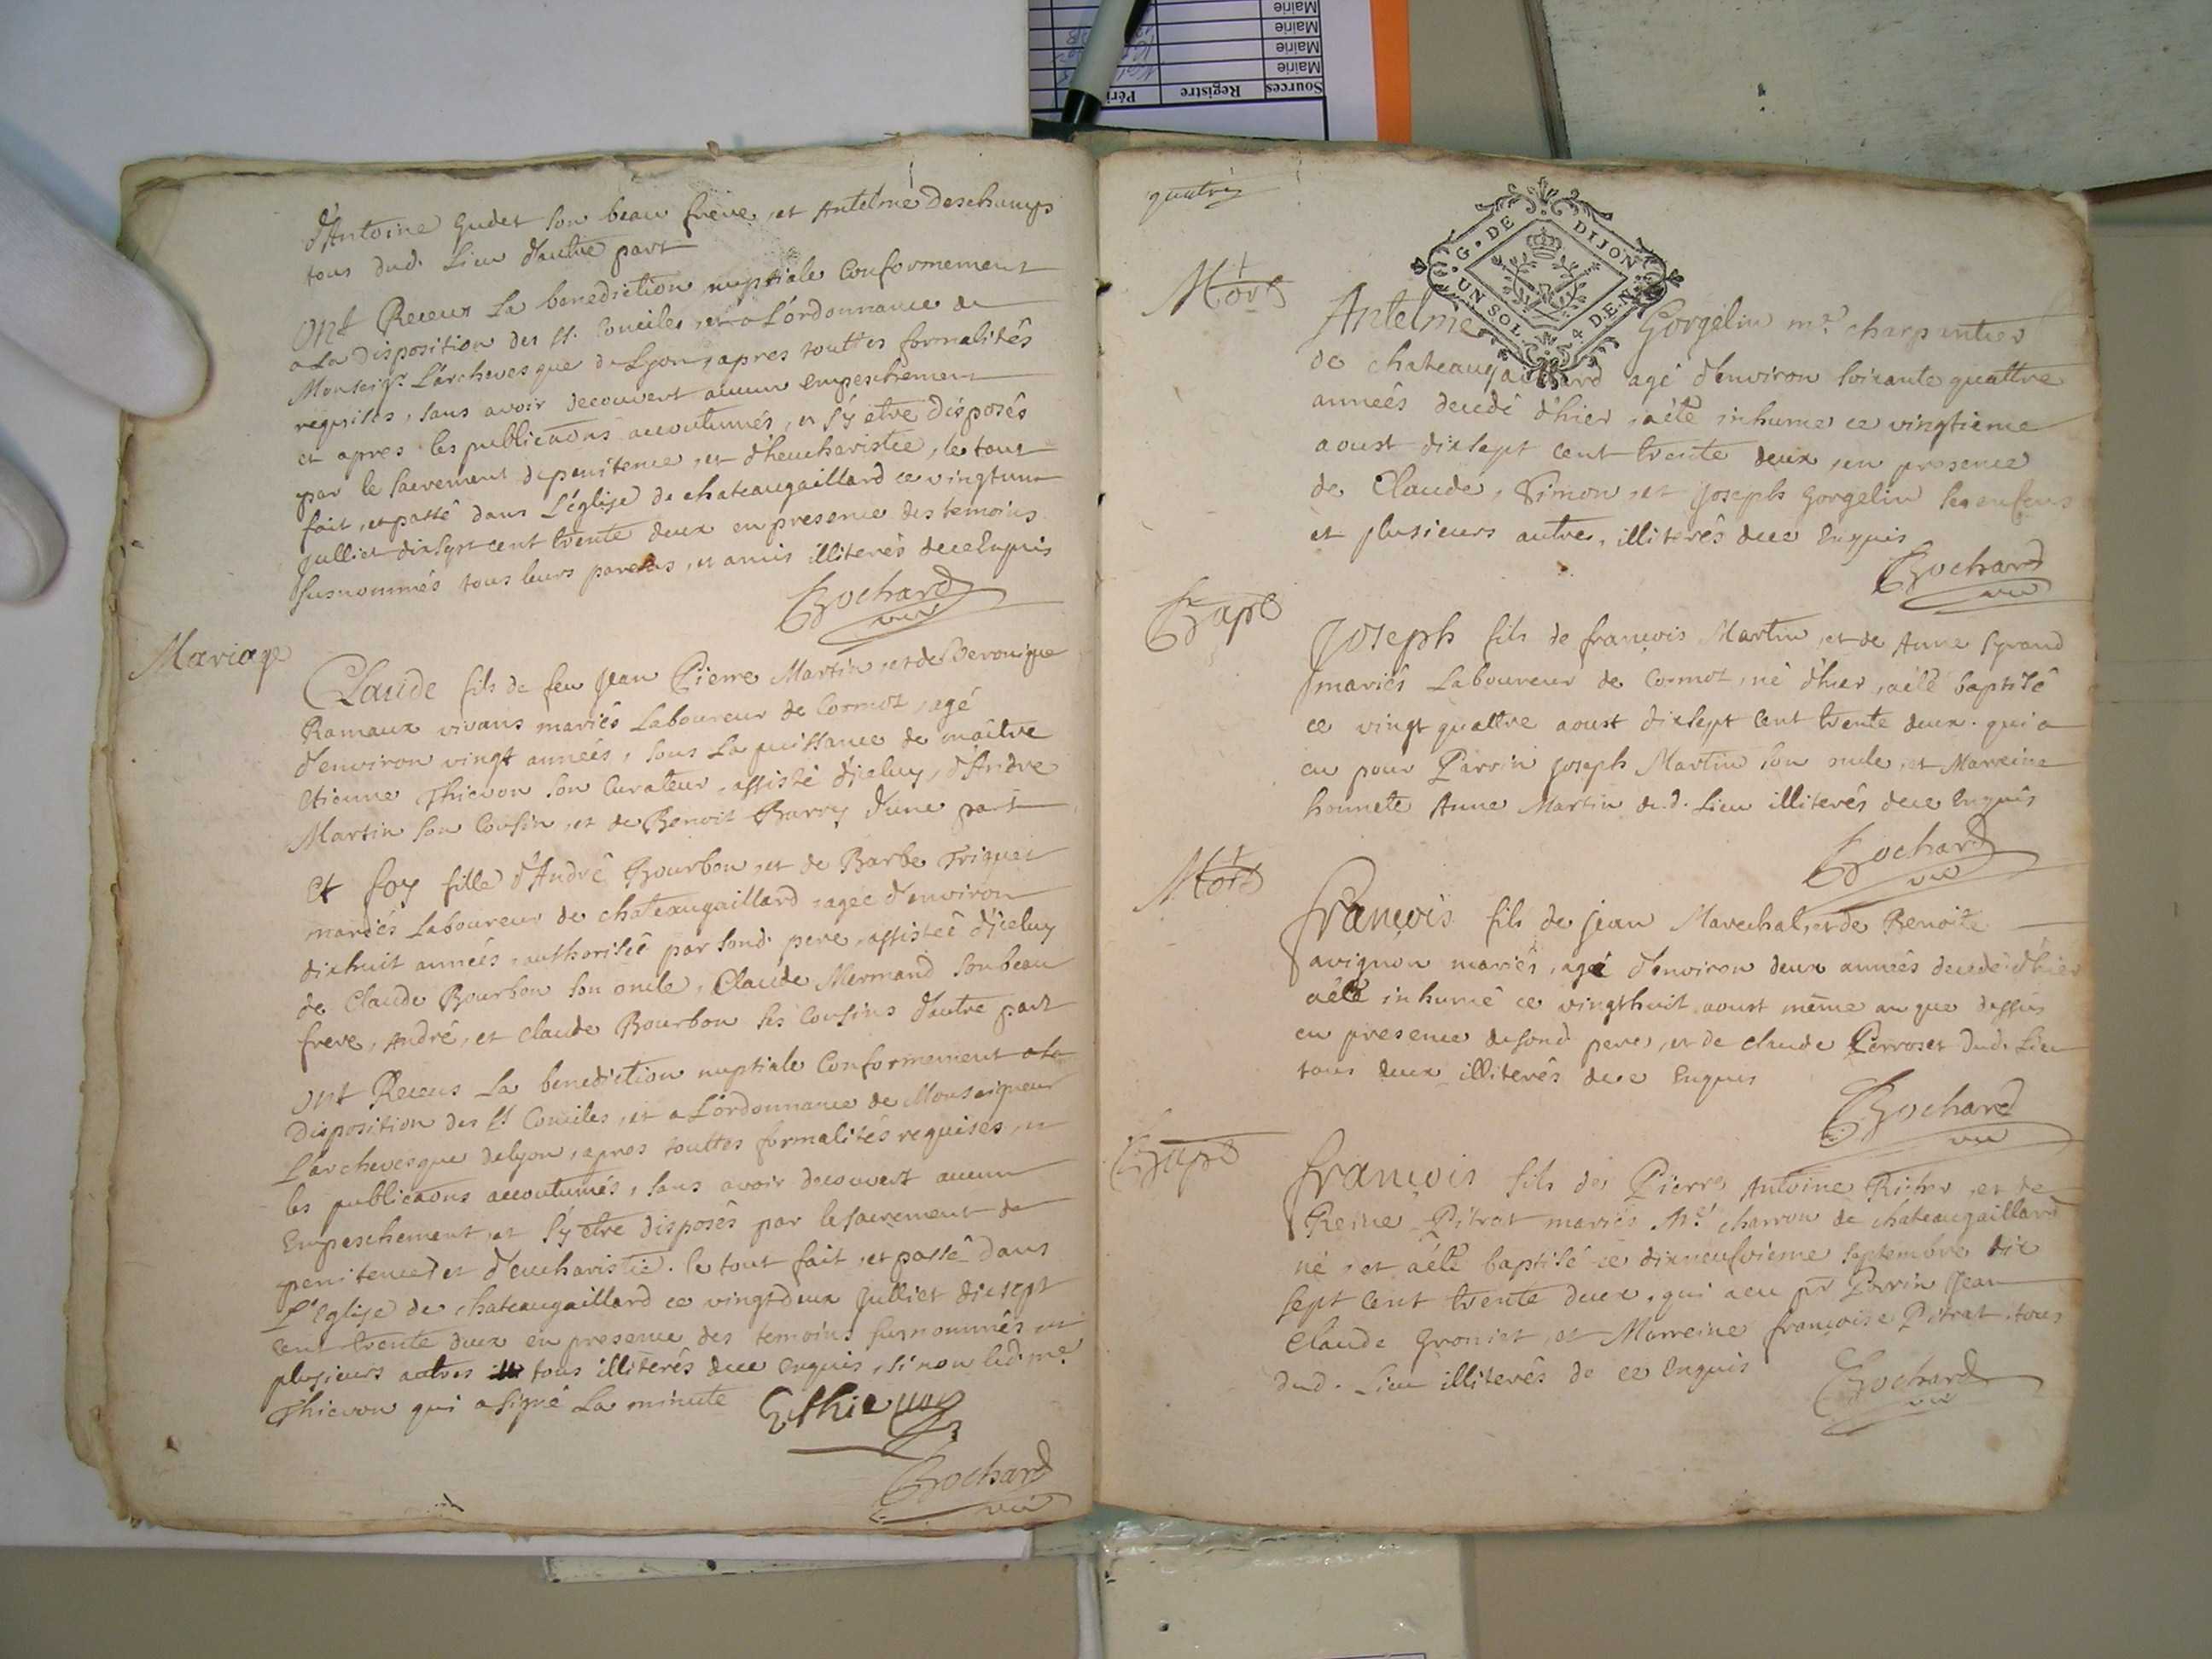 d'Antoine Gudet son beau frere, et Antelme Deschamps
tous dud. Lieu d'autre part
Ont Receus La benediction nuptiale Conformement
a La disposition des SS. Conciles, et a L'ordonnance de
Monseigr. L'archevesque de Lyon, apres touttes formalités
requises, sans avoir decouvert aucun empeschement
et apres les publicaons accoutumés, et s'y etre disposés
par le sacrement de penitence, et d'heucharistie, le tout
fait, et passé dans L'églyse de chateaugaillard ce vingtun
Julliet dixsept cent trente deux en presence des temoins
susnommés tous leurs parens, et amis illiterés dece Enquis
Brochard
vic
Mariage
Claude fils de feu Jean Pierre Martin, et de Veronique
Ramaux vivans mariés Laboureur de Cormoz, agé
d'environ vingt années, sous La puissance de maître
Etienne Thievon son Curateur, assisté d'iceluy, d'Andre
Martin son Cousin, et de Benoit Barry d'une part
Et foy fille d'André Bourbon, et de Barbe Triquet
mariés Laboureur de chateaugaillard, agée d'environ
dixhuit années, authorisée par sond. pere, assistée d'iceluy
de Claude Bourbon son oncle, Claude Mermand son beau
frere, André, et Claude Bourbon ses Cousins d'autre part
ont Receus La benediction nuptiale Conformement a La
Disposition des SS Conciles, et a L'ordonnance de Monseigneur
L'archevesque de Lyon, apres touttes formalités requises, et
les publicaons accoutumés, sans avoir decouvert aucun
Empeschement, et s'y etre disposés par le sacrement de
penitence, et d'eucharistie. le tout fait, et passé dans
L'Eglise de chateaugaillard ce vingtdeux Julliet dixsept
cent trente deux en presence des temoins susnommés et
plusieurs autres tous illiterés dece enquis, si non led. me.
Thievon qui a signé La minute EThievon
Brochard
vic
quatre
G. DE DIJON
UN SOL. 4 DEN.
Mort
Antelme Gorgelin me. charpentier
de chateaugaillard agé d'environ soixante quattre
années decedé d'hier, a été inhumé ce vingtieme
aoust dixsept cent trente deux, en presence
de Claude, Simon, et Joseph Gorgelin ses enfens
et plusieurs autre, illiterés dece Enquis
Brochard
vic
Bapt
Joseph fils de françois Martin, et de Anne Syrand
mariés Laboureur de Cormoz, né d'hier, a été baptisé
ce vingt quattre aoust dixsept cent trente deux. qui a
eu pour Parrin Joseph Martin son oncle, et Marreine
honnete Anne Martin dud. Lieu illiterés dece Enquis
Brochard
vic
Mort
françois fils de Jean Marechal, et de Benoite
avignon mariés, agé d'environ deux années decedé d'hier
a été inhumé ce vingthuit aoust même an que dessus
en presence de sond pere, et de claude Perroset dud. Lieu
tous deux illiterés dece Enquis
Brochard
vic
Bapt
françois fils de Pierre Antoine Richer, et de
Reine Pitrat mariés Me. charron de chateaugaillard
né, et a été baptisé ce dixneufvieme septembre dix
sept cent trente deux, qui a eu pr Parrin Jean
Claude Groniet, et Marreine françoise Pitrat, tous
dud. Lieu illiterés de ce Enquis
Brochard
vic
Sources
Registre
Péri
Mairie
Mairie
Mairie
Mairie